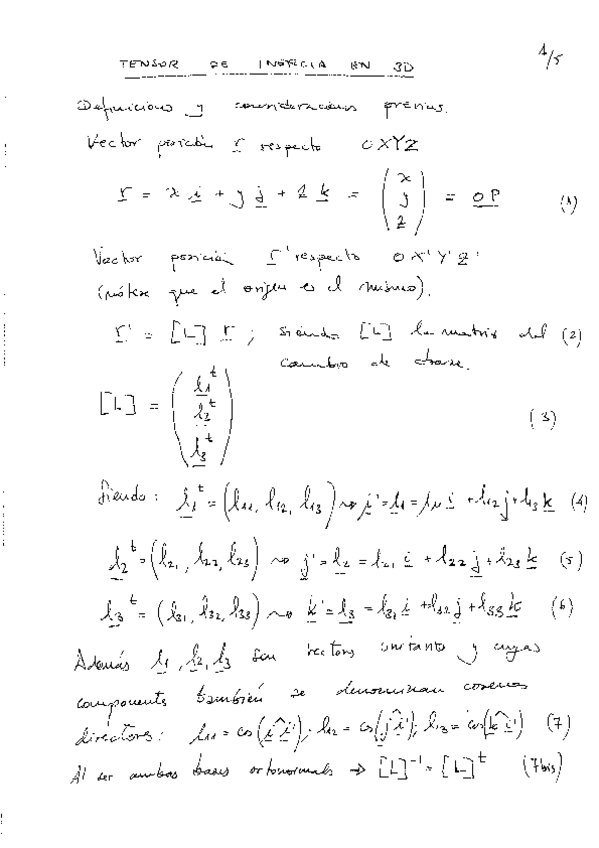 1/5
TENSOR DE INERCIA EN 3D
Definiciones y consideraciones previas.
Vector posición r respecto OXYZ
r = x i + y j + z k = (x y z) = OP (1)
Vector posición r' respecto OX'Y'Z'
(nótese que el origen es el mismo).
r' = [L] r ; siendo [L] la matriz del (2)
cambio de base.
[L] = (l1^t l2^t l3^t) (3)
Siendo: l1^t = (l11, l12, l13) ⇝ i' = l1 = l11 i + l12 j + l13 k (4)
l2^t = (l21, l22, l23) ⇝ j' = l2 = l21 i + l22 j + l23 k (5)
l3^t = (l31, l32, l33) ⇝ k' = l3 = l31 i + l32 j + l33 k (6)
Además l1, l2, l3 son vectores unitarios y cuyas
componentes también se denominan cosenos
directores: l11 = cos(i i'); l12 = cos(j i'); l13 = cos(k i') (7)
Al ser ambas bases ortonormales → [L]^-1 = [L]^t (7bis)